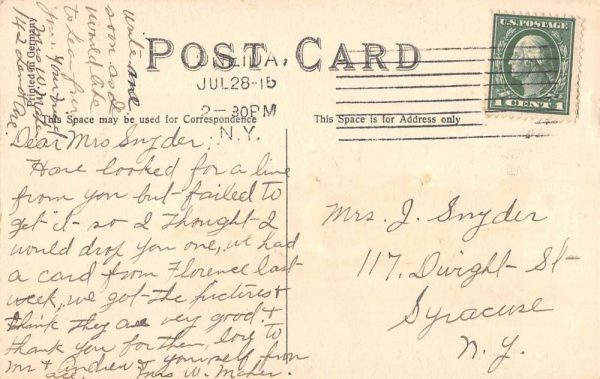 POST CARD
Printed in Germany
ONEIDA,
JUL 28-15
2-30PM
N.Y.
U.S. POSTAGE
1 CENT 1
This Space may be used for Correspondence
This Space is for Address only
Dear Mrs Snyder
Have looked for a line
from you but failed to
get it so I thought I
would drop you one, we had
a card from Florence last
week, we got the pictures &
think they are very good &
thank you for them, love to
Mr & Andrew & yourself from
all. Mrs W.
write and
soon as I
would like
to hear from
you. your friend
Mrs W.
142
Mrs. J. Snyder
117. Dwight St
Syracuse
N. Y.